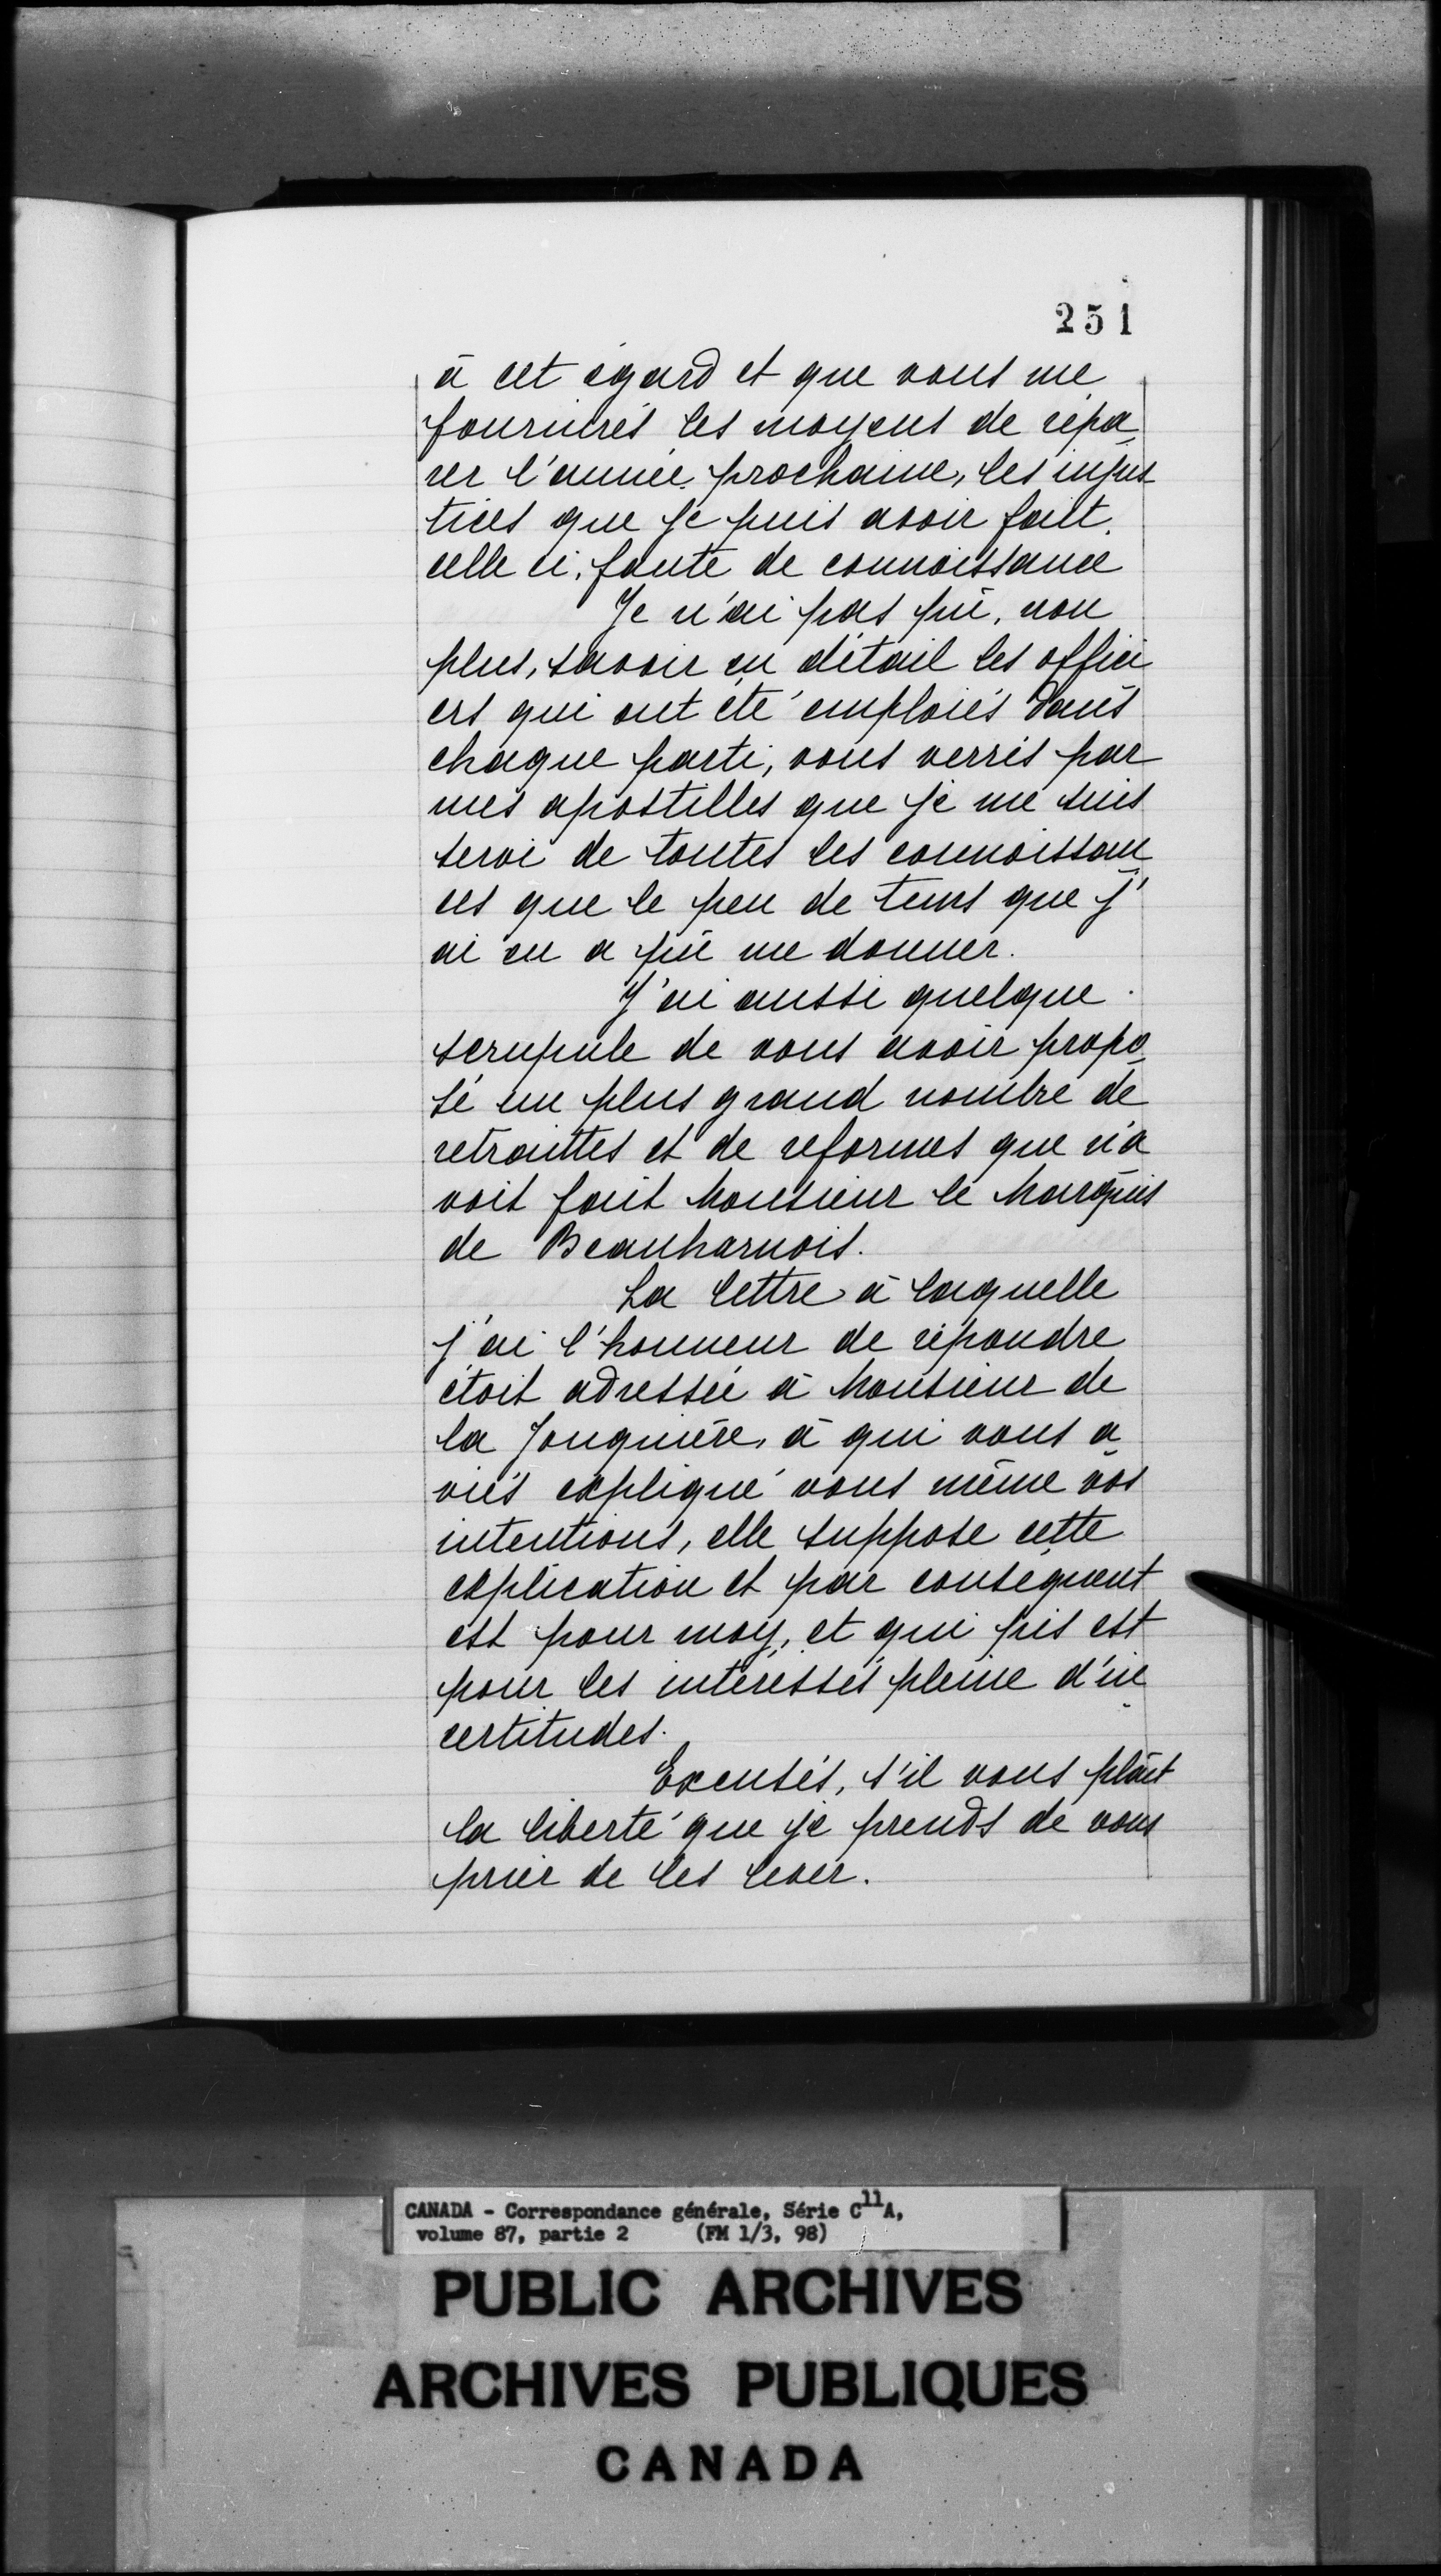 251
à cet égard et que vous me
fournirés les moyens de répa
rer l'année prochaine, les injus
tices que je puis avoir fait
celle ci, faute de connoissance
Je n'ai pas pû, non
plus, savoir en détail les offici
ers qui ont été emploiés dans
chaque parti, vous verrés par
mes apostilles que je me suis
servi de toutes les connoissan
ces que le peu de tems que j'
ai eu a pû me donner.
J'ai aussi quelque
scrupule de vous avoir propo
sé un plus grand nombre de
retraittes et de reformes que n'a
voit fait Monsieur le Marquis
de Beauharnois.
La lettre à laquelle
j'ai l'honneur de répondre
étoit adressée à Monsieur de
la Jonquière, à qui vous a
viés expliqué vous même vos
intentions, elle suppose cette
explication et par conséquent
est pour moy, et qui pis est
pour les intéressés pleine d'in
certitudes.
Excusés, s'il vous plait
la liberté que je prends de vous
prier de les lever.
CANADA - Correspondance générale, Série C11A,
volume 87, partie 2 (FM 1/3, 98)
PUBLIC ARCHIVES
ARCHIVES PUBLIQUES
CANADA